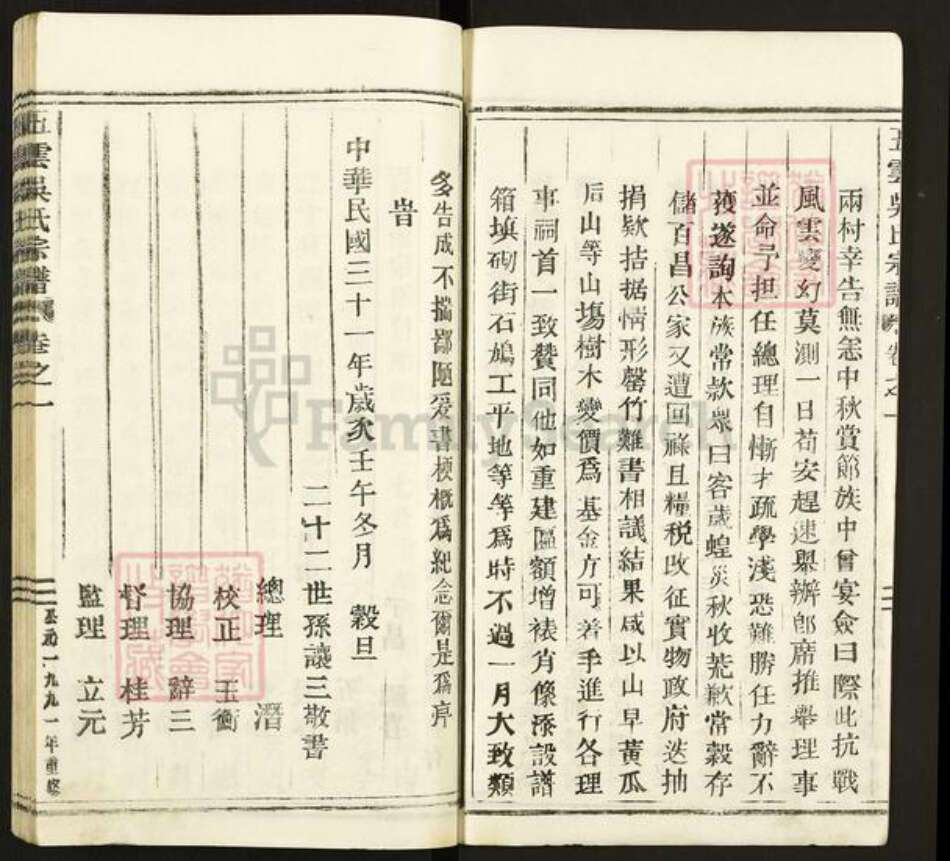 五雲吳氏宗譜 卷之一
兩村幸告無恙中秋賞節族中曾宴僉曰際此抗戰
風雲變幻莫測一日苟安趕速舉辦即席推舉理事
並命予担任總理自慚才疏學淺恐難勝任力辭不
獲遂詢本族常款眾曰客歲蝗災秋收荒歉常穀存
儲百昌公家又遭回祿且糧稅改征實物政府迭抽
捐欵拮据情形罄竹難書相議結果咸以山早黃瓜
后山等山塲樹木變價爲基金方可着手進行各理
事祠首一致贊同他如重建匾額增裱肖像添設譜
箱填砌街石鳩工平地等等爲時不過一月大致類
多告成不揣鄙陋爰書梗概爲紀念爾是爲序
旹
中華民國三十一年歲次壬午冬月 穀旦
二十二世孫讓三敬書
總理 潛
校正 玉衡
協理 辭三
督理 桂芳
監理 立元
五雲吳氏宗譜 卷之一
公元一九九一年重修
FamilySearch